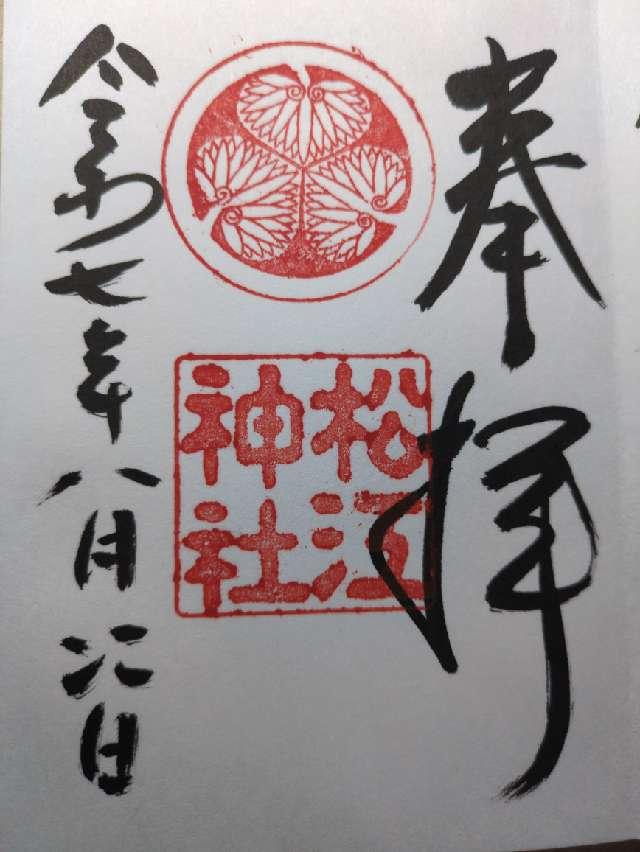 奉拝
松江
神社
令和七年八月日